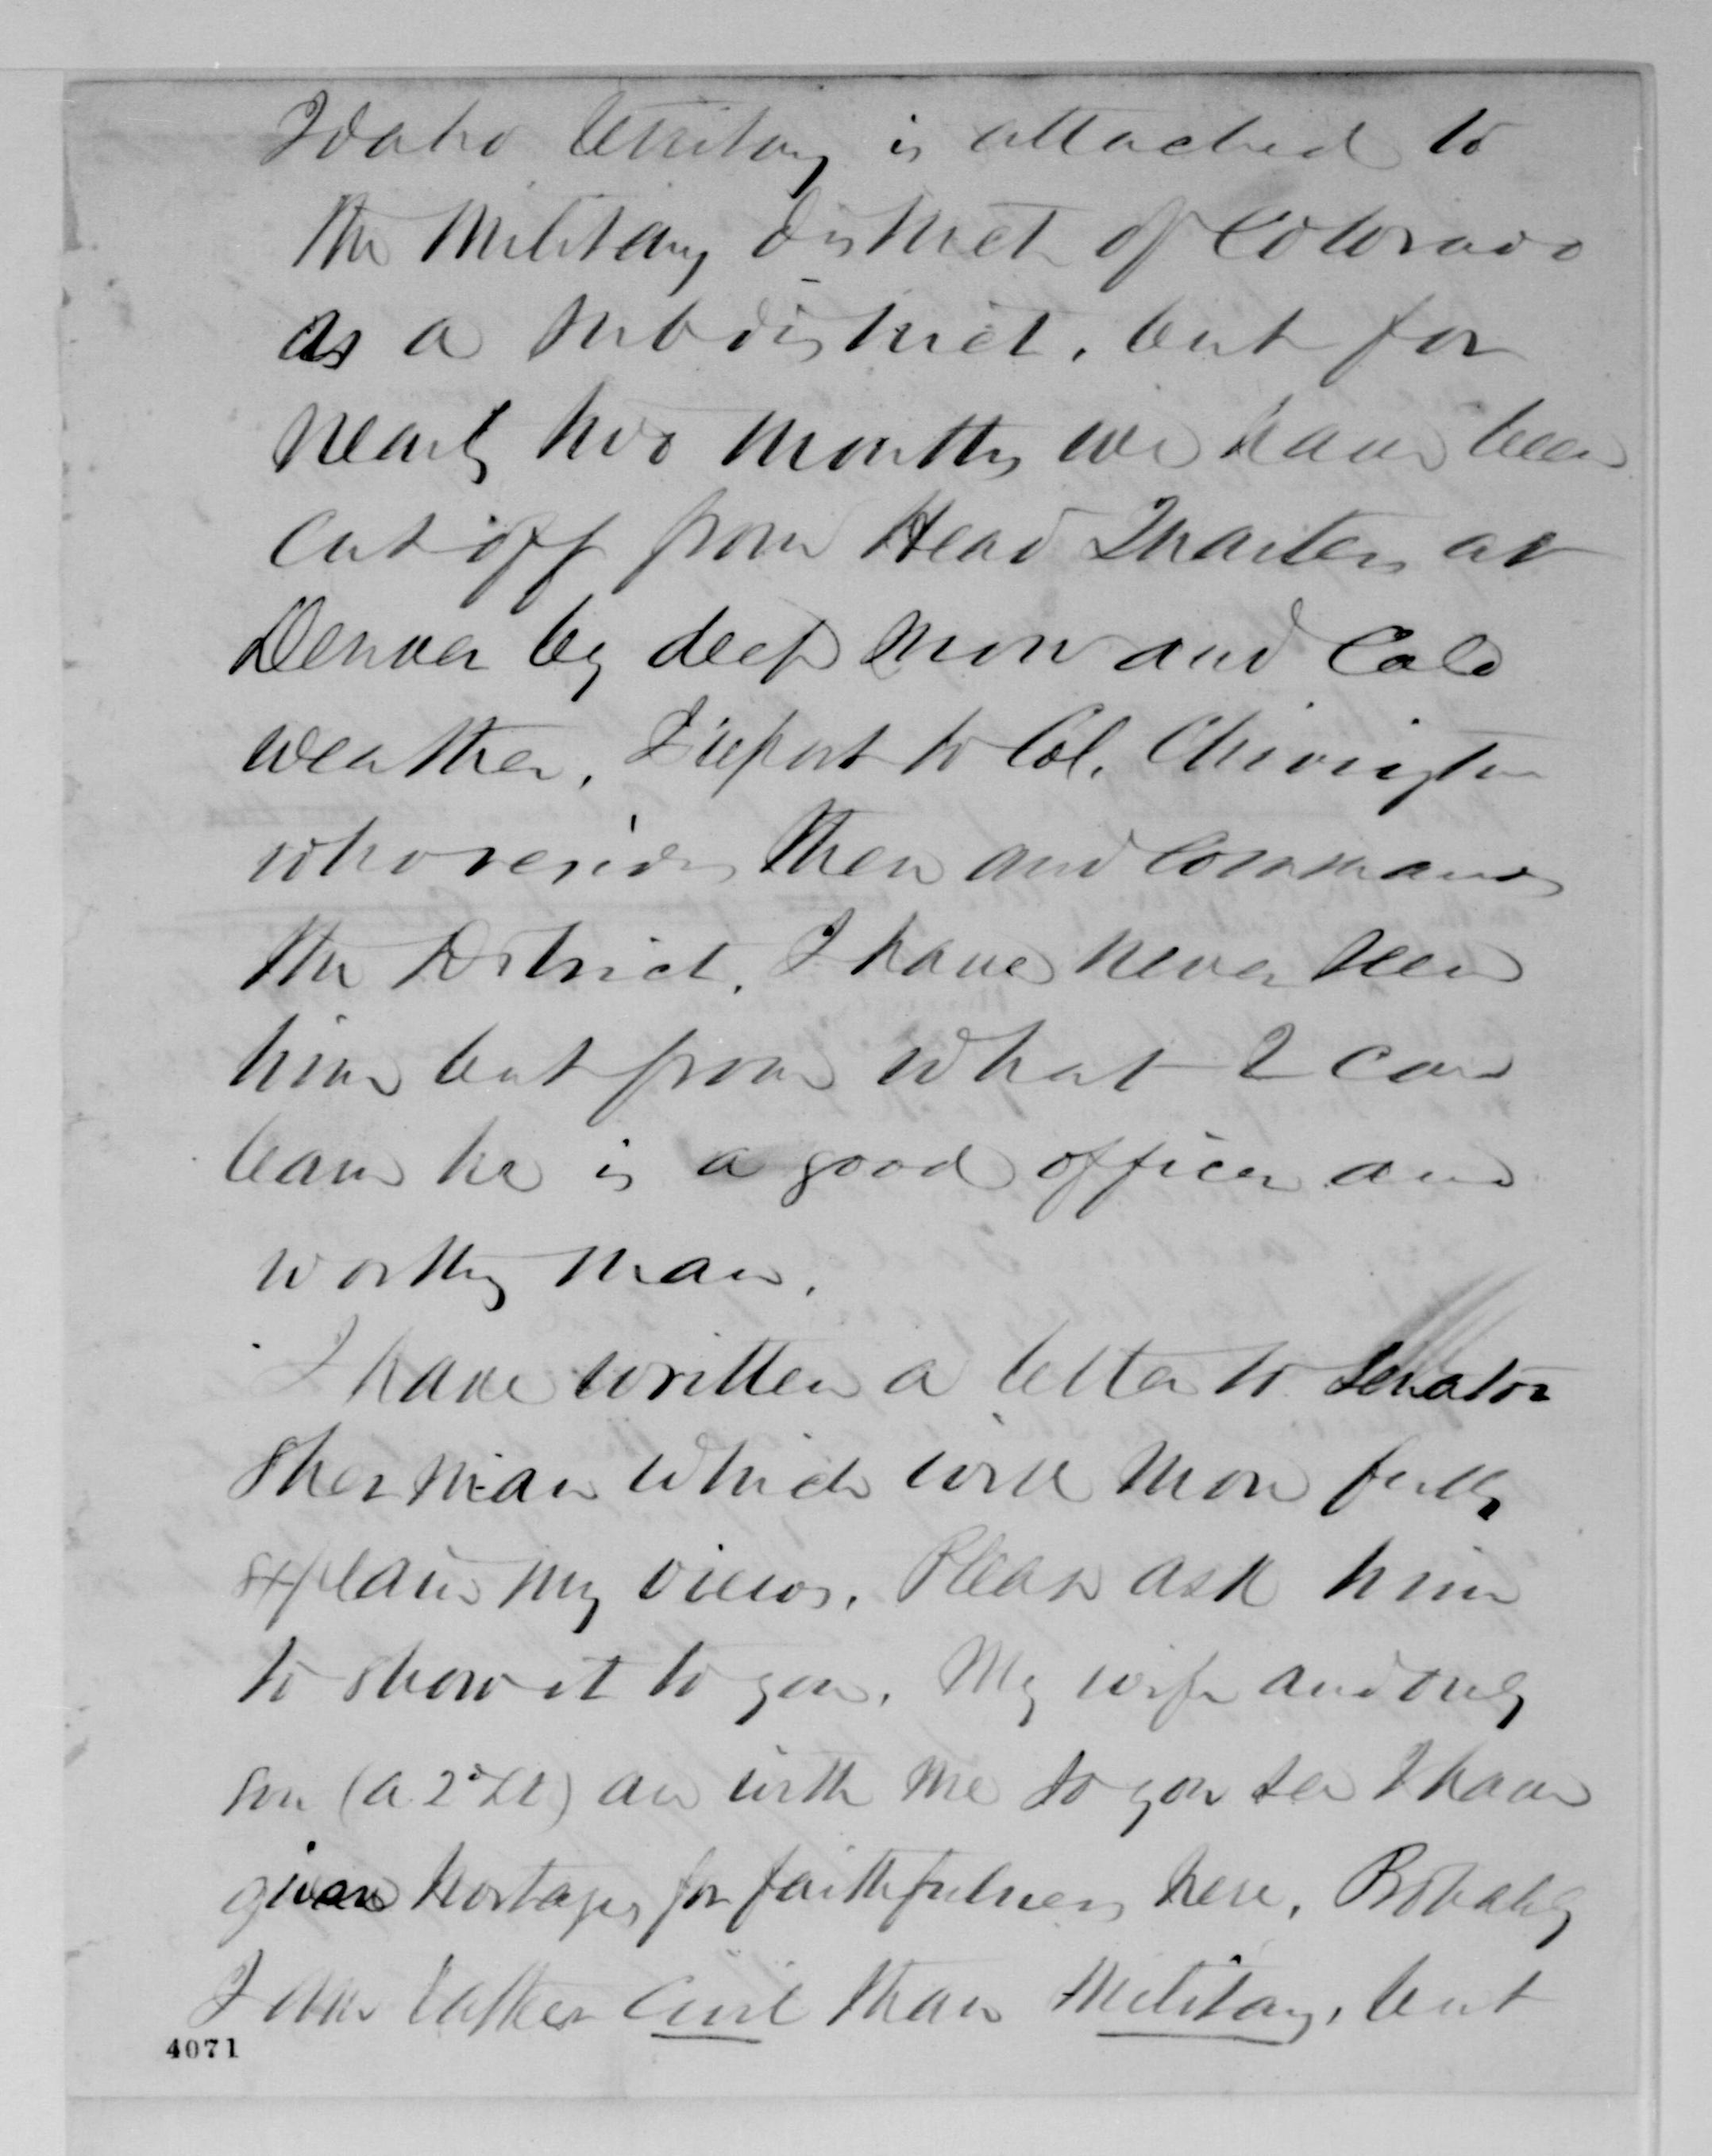 Idaho Territory is attached to
the Military district of Colorado
as a subdistrict, but for
nearly two months we have been
cut off from Head Quarters at
Denver by deep snow and Cold
weather. I report to Col. Chivington
who resides there and Commands
the District. I have never seen
him but from what I can
learn he is a good officer and
worthy man.
I have written a letter to Senator
Sherman which will more fully
explain my views. Please ask him
to show it to you. My wife and only
son (a 2d Lt) are with me so you see I have
given hostages for faithfulness here. Probably
I am rather Civil than Military, but
4071